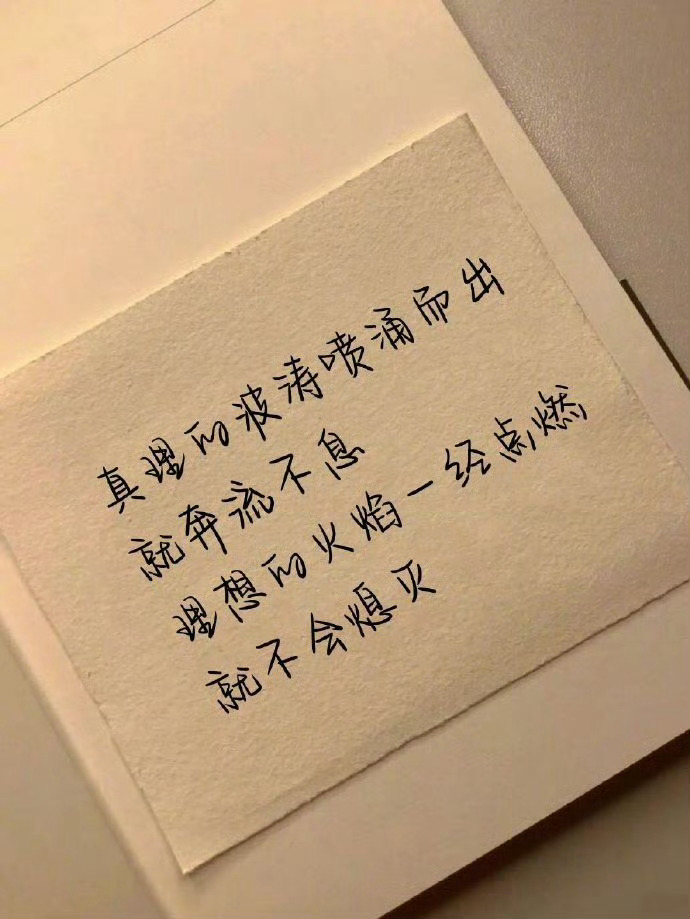 真理的波涛喷涌而出
就奔流不息
理想的火焰一经点燃
就不会熄灭